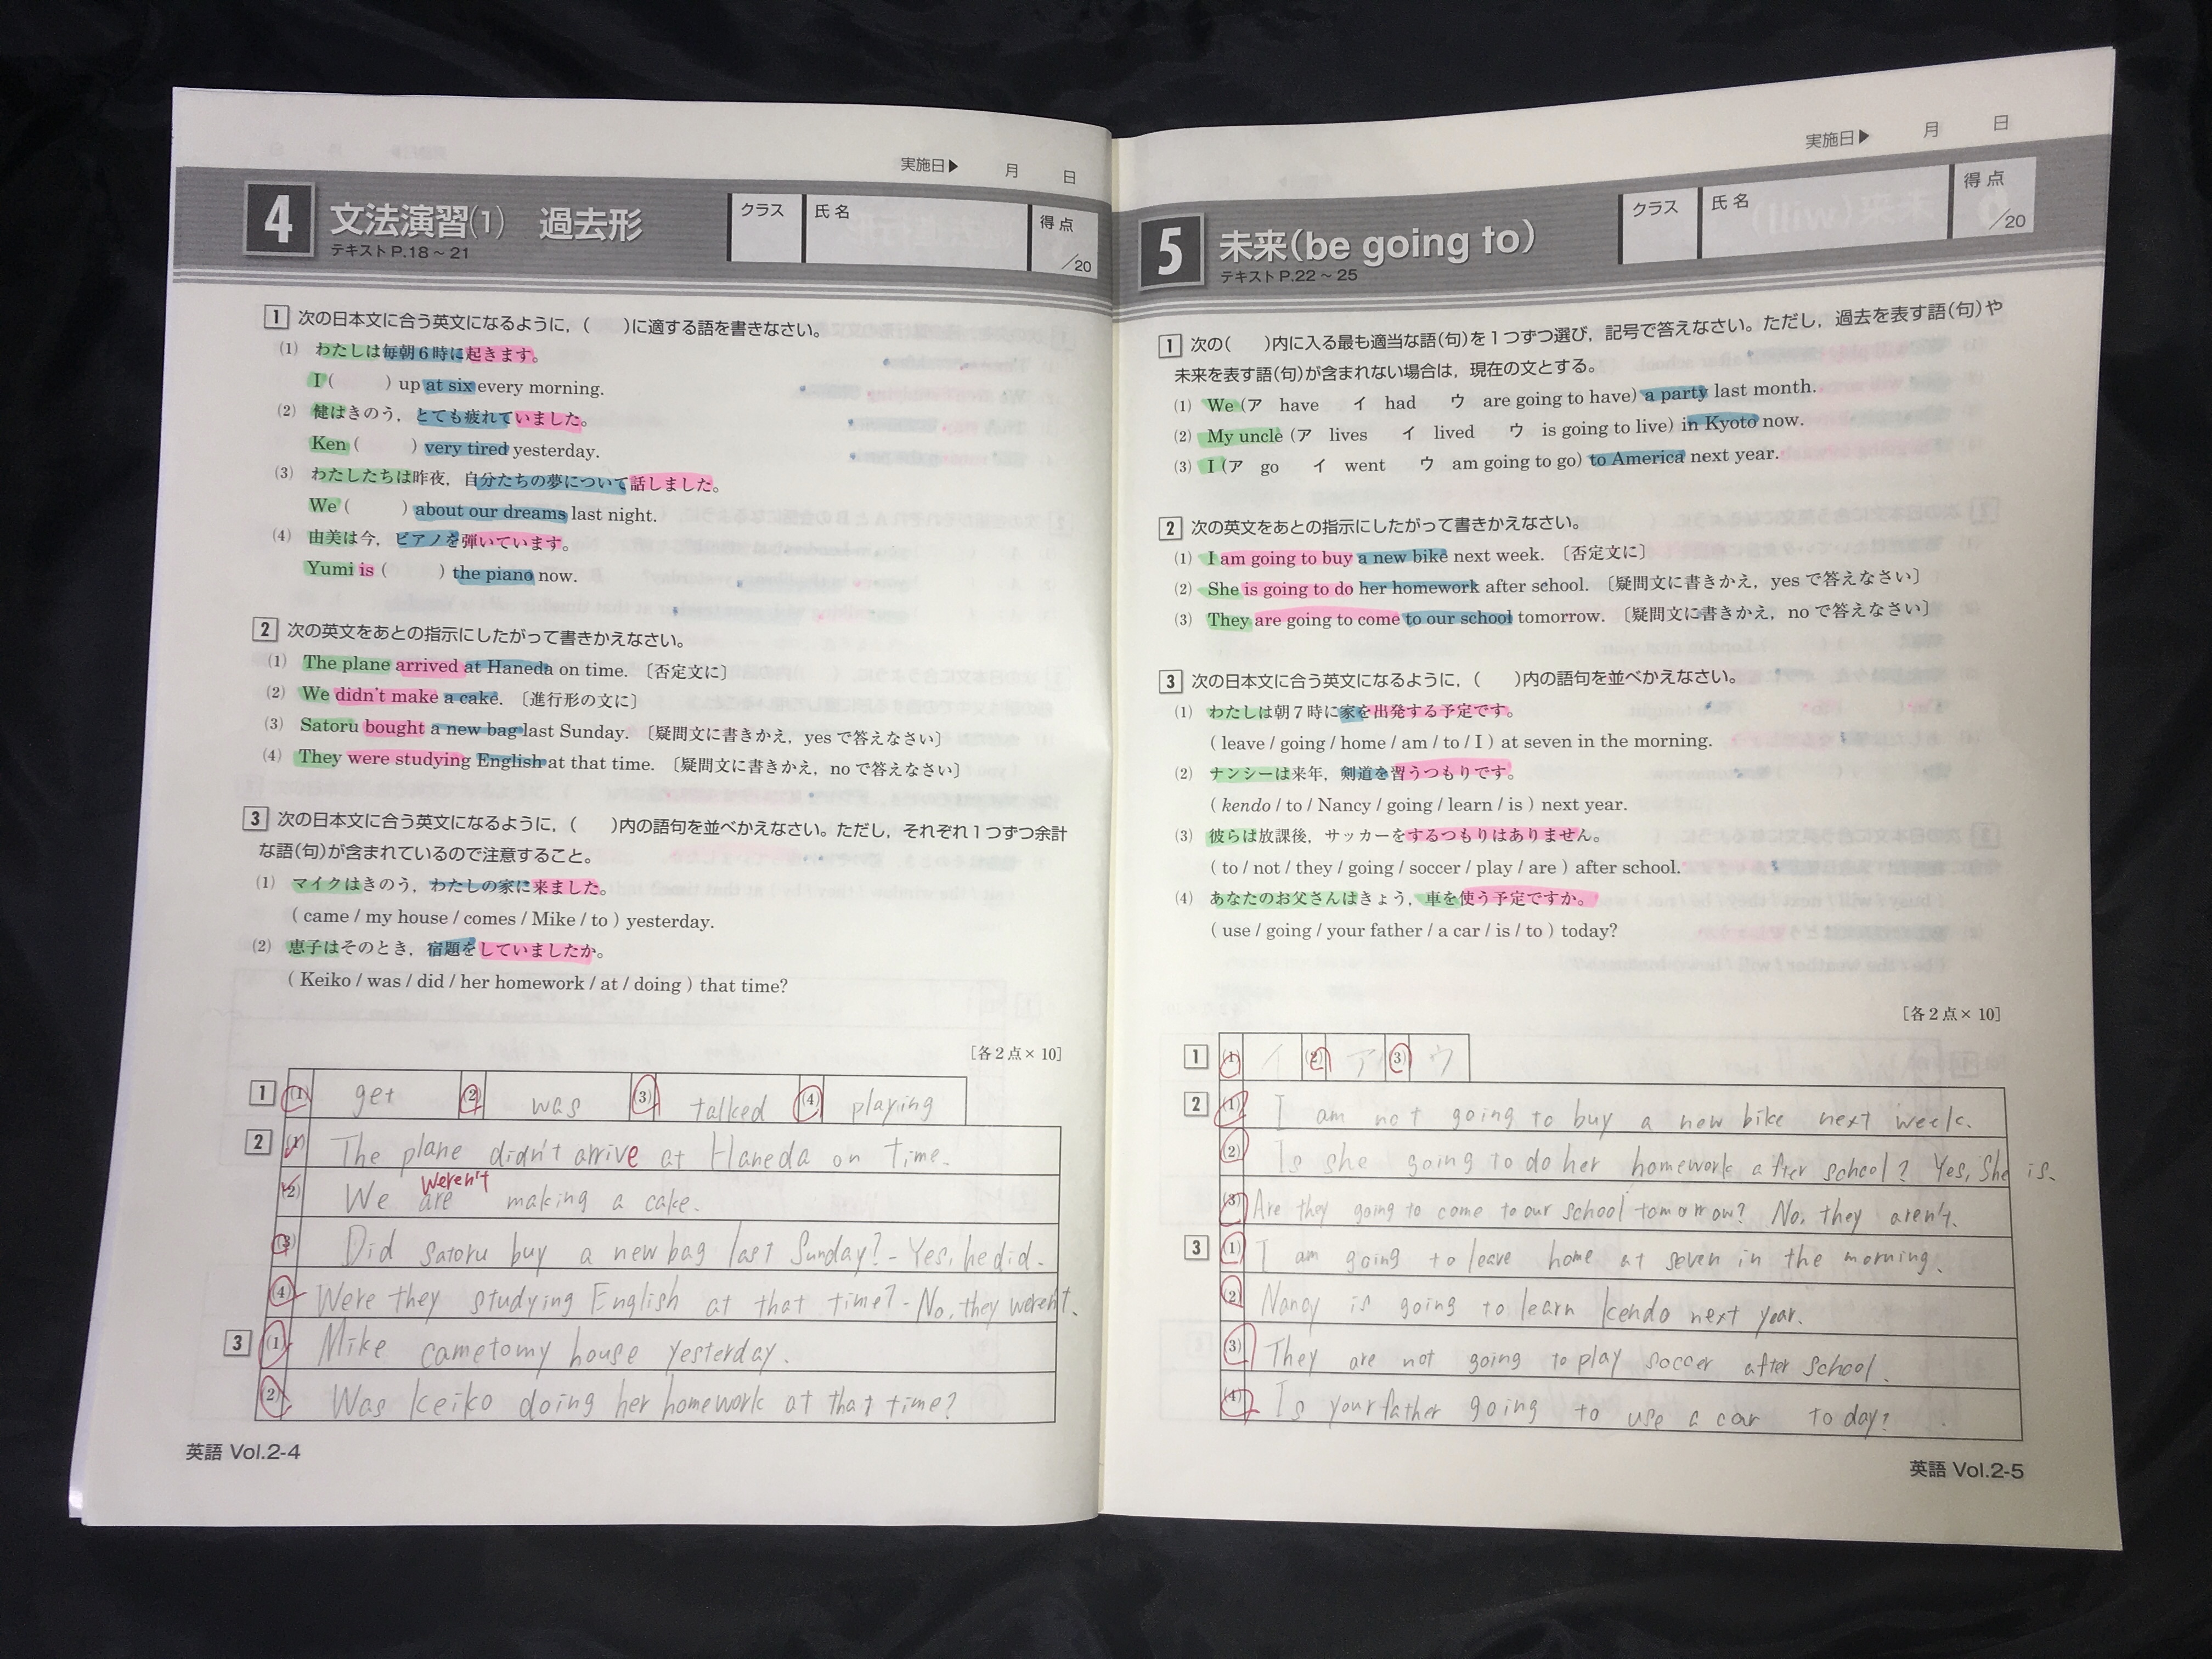 実施日▶ 月 日
4 文法演習(1) 過去形
テキストP.18~21
クラス 氏名 得点 /20
1 次の日本文に合う英文になるように，( )に適する語を書きなさい。
(1) わたしは毎朝6時に起きます。
I ( ) up at six every morning.
(2) 健はきのう，とても疲れていました。
Ken ( ) very tired yesterday.
(3) わたしたちは昨夜，自分たちの夢について話しました。
We ( ) about our dreams last night.
(4) 由美は今，ピアノを弾いています。
Yumi is ( ) the piano now.
2 次の英文をあとの指示にしたがって書きかえなさい。
(1) The plane arrived at Haneda on time. 〔否定文に〕
(2) We didn't make a cake. 〔進行形の文に〕
(3) Satoru bought a new bag last Sunday. 〔疑問文に書きかえ，yesで答えなさい〕
(4) They were studying English at that time. 〔疑問文に書きかえ，noで答えなさい〕
3 次の日本文に合う英文になるように，( )内の語句を並べかえなさい。ただし，それぞれ1つずつ余計
な語(句)が含まれているので注意すること。
(1) マイクはきのう，わたしの家に来ました。
( came / my house / comes / Mike / to ) yesterday.
(2) 恵子はそのとき，宿題をしていましたか。
( Keiko / was / did / her homework / at / doing ) that time?
[各2点×10]
1 (1) get (2) was (3) talked (4) playing
2 (1) The plane didn't arrive at Haneda on time.
weren't
(2) We are making a cake.
(3) Did satoru buy a new bag last Sunday? - Yes, he did.
(4) Were they studying English at that time? - No, they weren't.
3 (1) Mike came to my house yesterday.
(2) Was keiko doing her homework at that time?
英語 Vol.2-4
実施日▶ 月 日
5 未来(be going to)
テキストP.22~25
クラス 氏名 得点 /20
1 次の( )内に入る最も適当な語(句)を1つずつ選び，記号で答えなさい。ただし，過去を表す語(句)や
未来を表す語(句)が含まれない場合は，現在の文とする。
(1) We (ア have イ had ウ are going to have) a party last month.
(2) My uncle (ア lives イ lived ウ is going to live) in Kyoto now.
(3) I (ア go イ went ウ am going to go) to America next year.
2 次の英文をあとの指示にしたがって書きかえなさい。
(1) I am going to buy a new bike next week. 〔否定文に〕
(2) She is going to do her homework after school. 〔疑問文に書きかえ，yesで答えなさい〕
(3) They are going to come to our school tomorrow. 〔疑問文に書きかえ，noで答えなさい〕
3 次の日本文に合う英文になるように，( )内の語句を並べかえなさい。
(1) わたしは朝7時に家を出発する予定です。
( leave / going / home / am / to / I ) at seven in the morning.
(2) ナンシーは来年，剣道を習うつもりです。
( kendo / to / Nancy / going / learn / is ) next year.
(3) 彼らは放課後，サッカーをするつもりはありません。
( to / not / they / going / soccer / play / are ) after school.
(4) あなたのお父さんはきょう，車を使う予定ですか。
( use / going / your father / a car / is / to ) today?
[各2点×10]
1 (1) イ (2) ア (3) ウ
2 (1) I am not going to buy a new bike next week.
(2) Is she going to do her homework after school? Yes, She is.
(3) Are they going to come to our school tomorrow? No, they aren't.
3 (1) I am going to leave home at seven in the morning.
(2) Nancy is going to learn kendo next year.
(3) They are not going to play soccer after school.
(4) Is your father going to use a car today?
英語 Vol.2-5